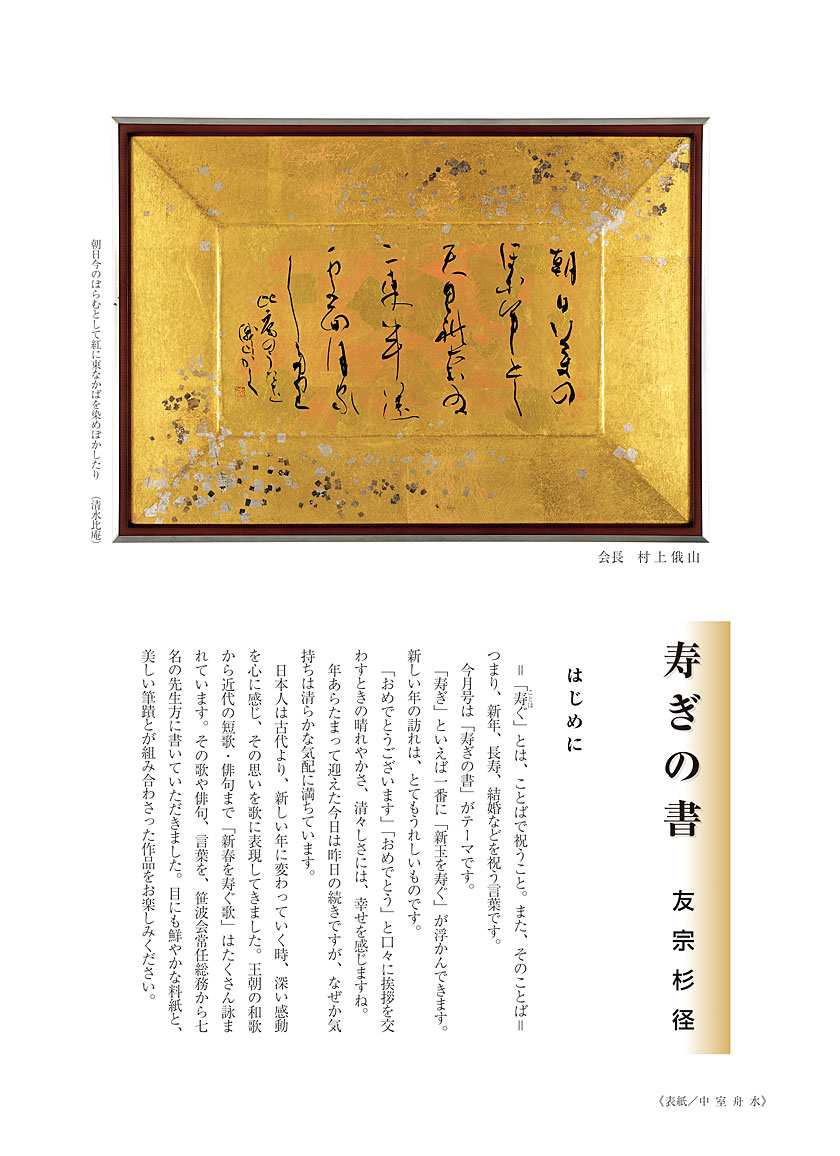 朝日いまの
朝日今のぼらむとして紅に東なかばを染めぼかしたり　（清水比庵）
会長　村上俄山
寿ぎの書　友宗杉径
はじめに
＝「寿ぐ」とは、ことばで祝うこと。また、そのことば＝
ことほ
つまり、新年、長寿、結婚などを祝う言葉です。
今月号は「寿ぎの書」がテーマです。
「寿ぎ」といえば一番に「新玉を寿ぐ」が浮かんできます。
新しい年の訪れは、とてもうれしいものです。
「おめでとうございます」「おめでとう」と口々に挨拶を交
わすときの晴れやかさ、清々しさには、幸せを感じますね。
年あらたまって迎えた今日は昨日の続きですが、なぜか気
持ちは清らかな気配に満ちています。
日本人は古代より、新しい年に変わっていく時、深い感動
を心に感じ、その思いを歌に表現してきました。王朝の和歌
から近代の短歌・俳句まで「新春を寿ぐ歌」はたくさん詠ま
れています。その歌や俳句、言葉を、笹波会常任総務から七
名の先生方に書いていただきました。目にも鮮やかな料紙と、
美しい筆蹟とが組み合わさった作品をお楽しみください。
《表紙／中室舟水》